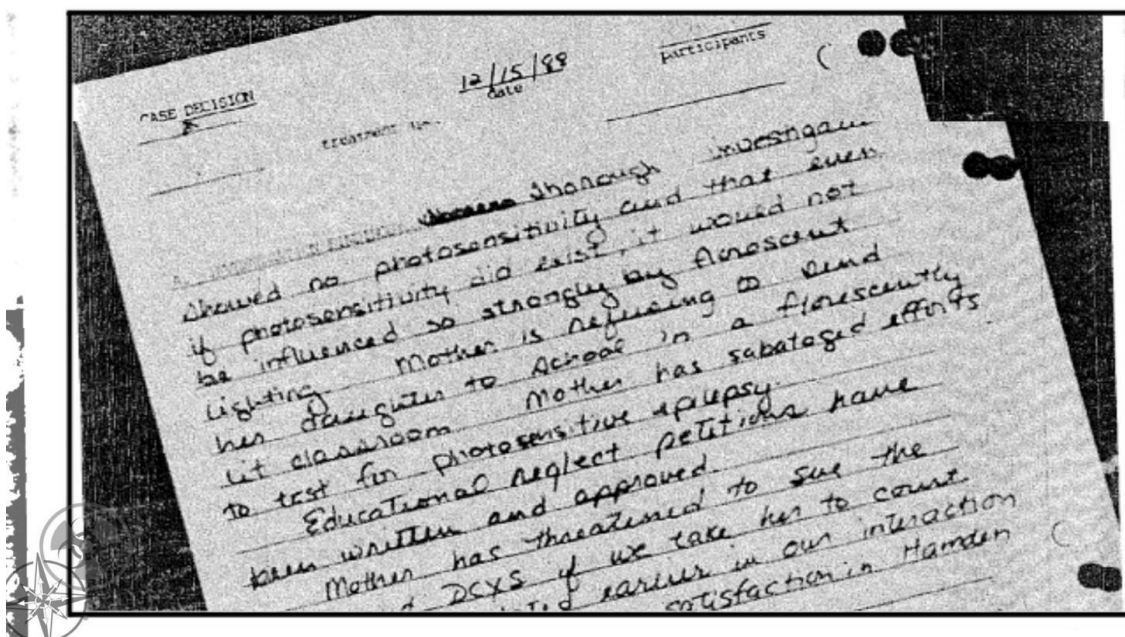 CASE DECISION
12/15/88
date
participants
treatment
thorough investiga
showed no photosensitivity and that even
if photosensitivity did exist, it would not
be influenced so strongly by florescent
lighting. Mother is refusing to send
her daughter to school in a florescently
lit classroom. Mother has sabataged efforts
to test for photosensitive epilepsy.
Educational neglect petitions have
been written and approved.
Mother has threatened to sue the
DCYS if we take her to court.
earlier in our interaction
satisfaction in Hamden